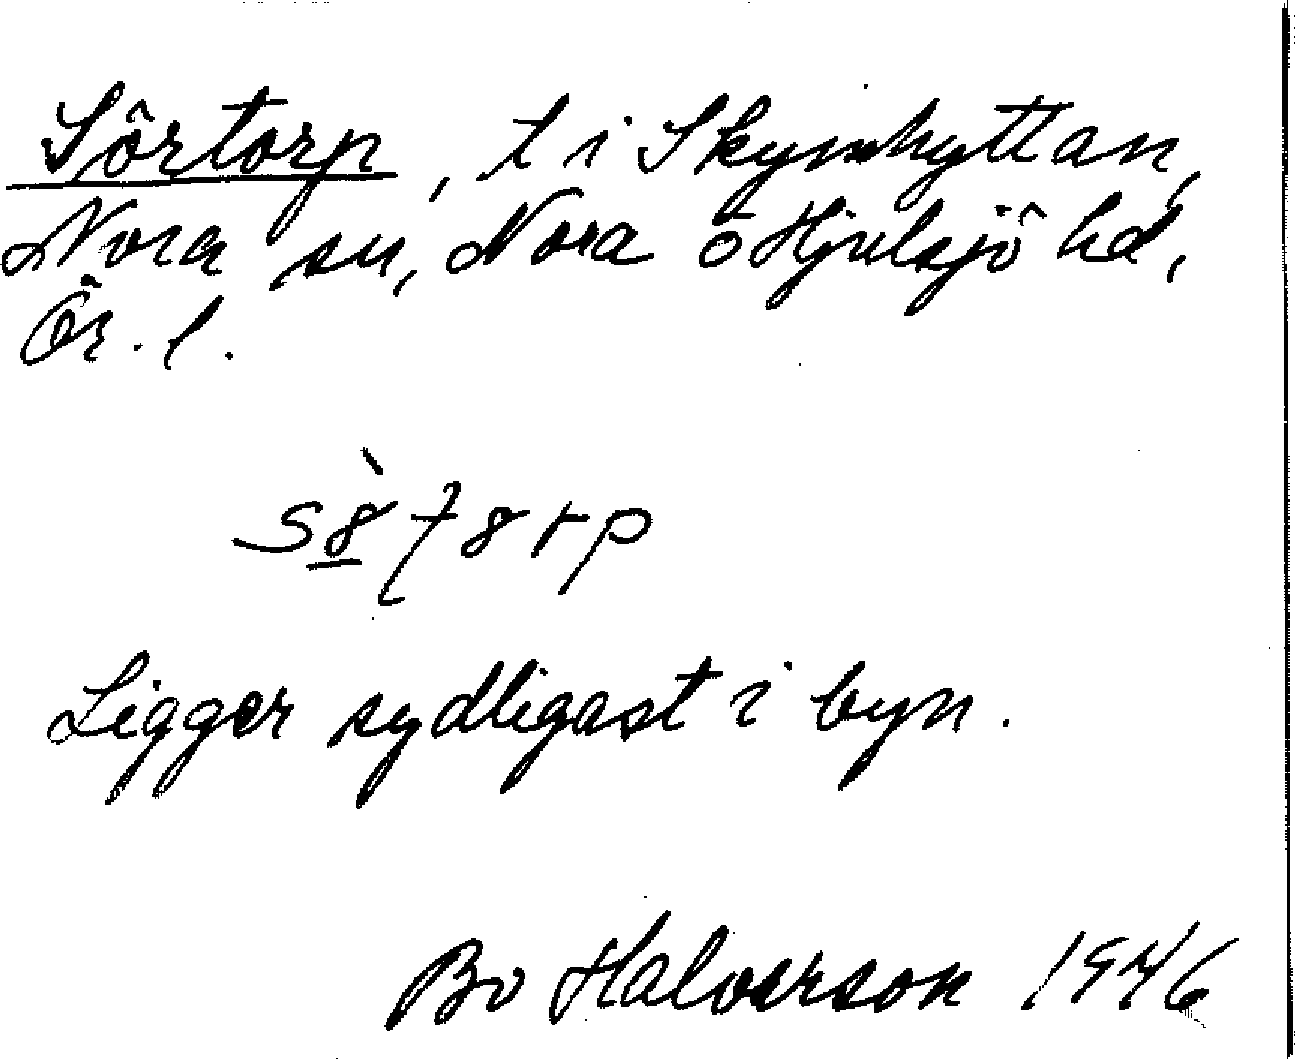 Sörtorp, t i Skymhyttan,
Nora sn, Nora o Hjulsjö hd,
Ör. l.
Ligger sydligast i byn.
Bo Halverson 1946